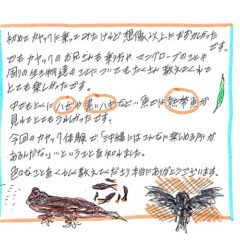 初めてカヤックに乗ってみたけれど想像以上にむずかしかった
です。
でもカヤックのお兄さんも乗り方やマングローブのことや
周りの生き物達のことについてもたくさん教えてくれて
とても楽しかったです。
中でもとくに
など
が
見れてとてもうれしかったです。
今回のカヤック体験で「沖縄にはこんなに楽しめる所が
あるんだな。」ということを知れました。
色んなことをたくさん教えてくださり本当にありがとうございます。